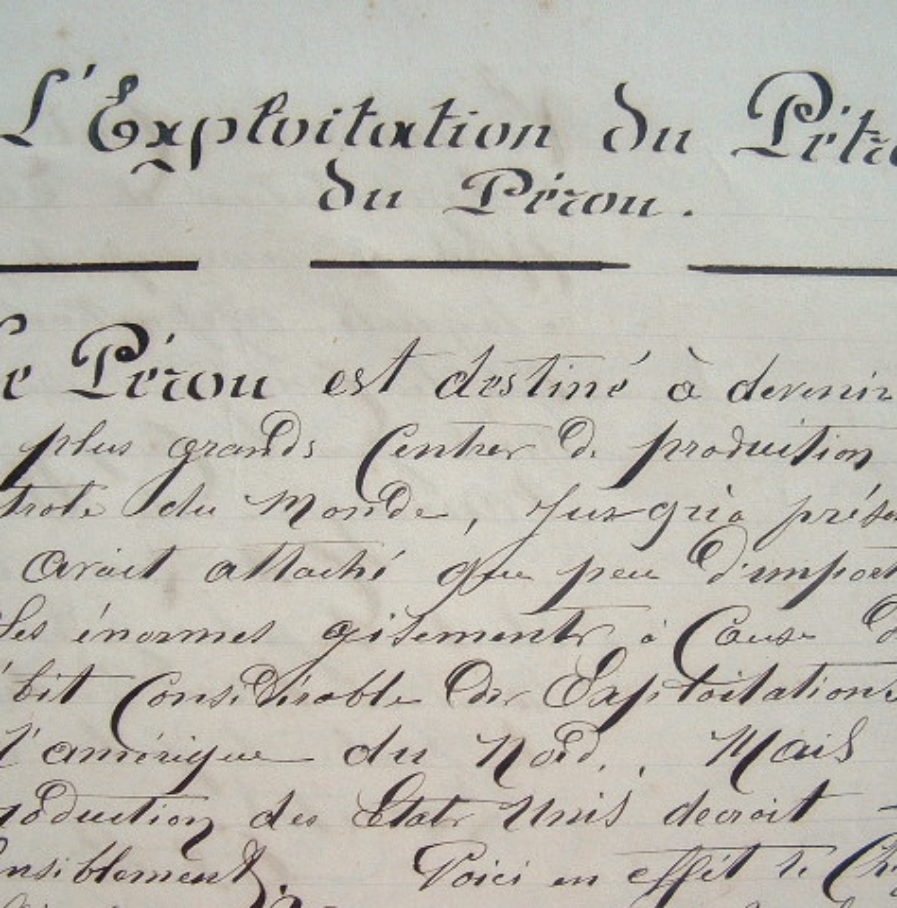 L'Exploitation du Pétro
du Pérou.
Le Pérou est destiné à devenir
plus grands Centres de production
trole du Monde, Jusqu'à prése
avait attaché que peu d'import
Ses énormes gisements à Cause d
ébit Considérable des Exploitations
l'amérique du Nord. Mais
roduction des Etats Unis décroit
ensiblement. Voici en effet le Ch